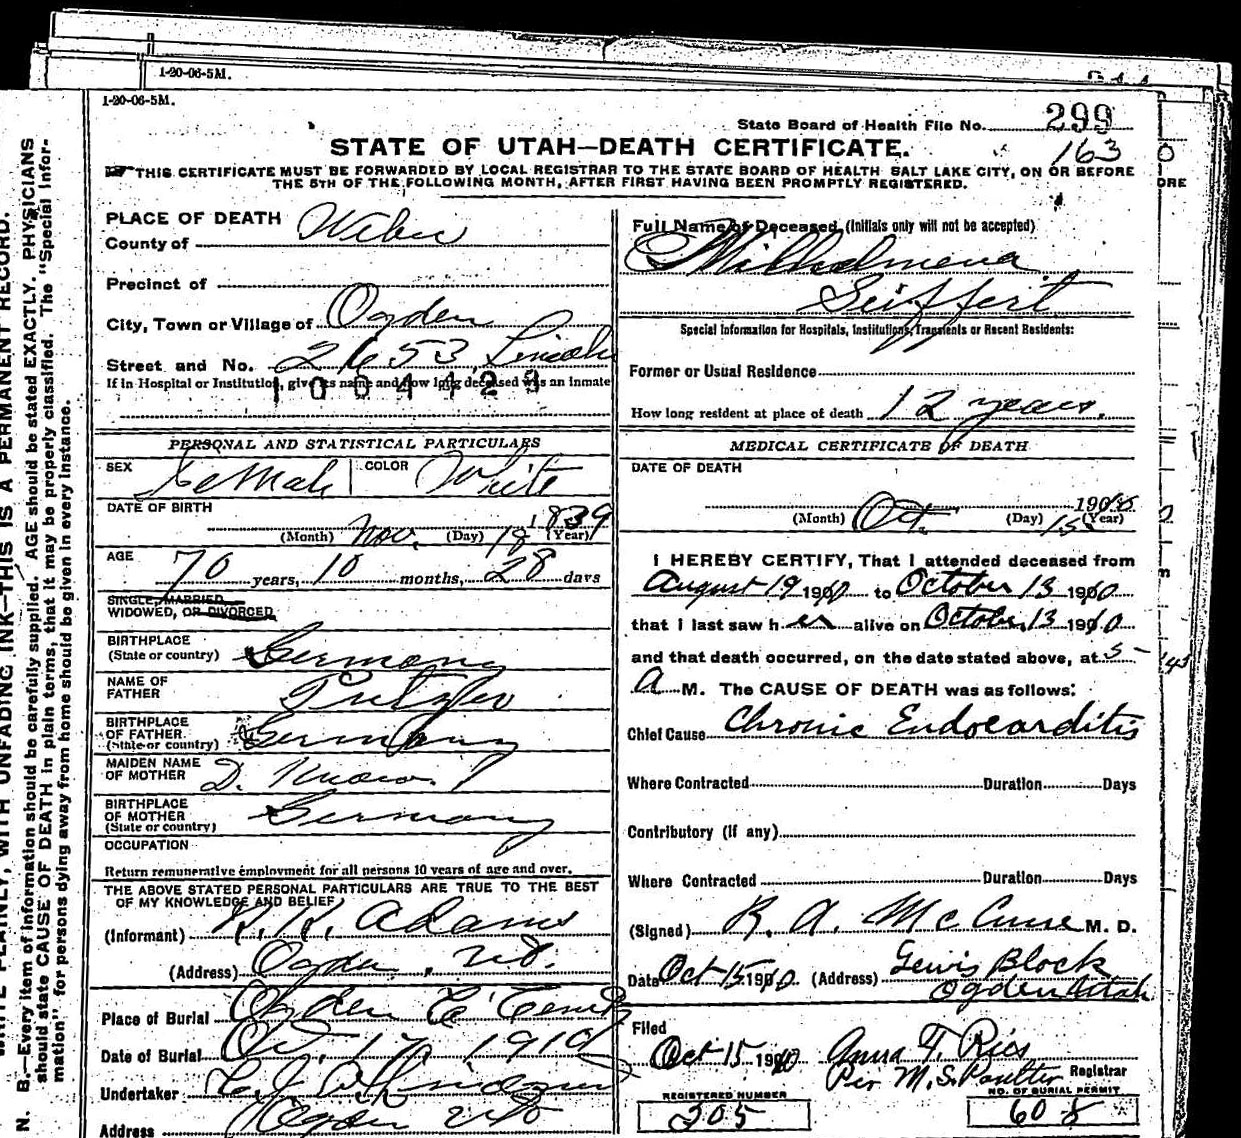 1-20-06-5M.
1-20-06-5M.
State Board of Health File No. 299
163
STATE OF UTAH—DEATH CERTIFICATE.
THIS CERTIFICATE MUST BE FORWARDED BY LOCAL REGISTRAR TO THE STATE BOARD OF HEALTH SALT LAKE CITY, ON OR BEFORE
THE 5TH OF THE FOLLOWING MONTH, AFTER FIRST HAVING BEEN PROMPTLY REGISTERED.
ORE
N. B.—Every item of information should be carefully supplied. AGE should be stated EXACTLY. PHYSICIANS
should state CAUSE OF DEATH in plain terms, that it may be properly classified. The "Special Infor-
mation" for persons dying away from home should be given in every instance.
WRITE PLAINLY, WITH UNFADING INK—THIS IS A PERMANENT RECORD.
PLACE OF DEATH
County of Weber
Precinct of
City, Town or Village of Ogden
Street and No. 2653 Lincoln
If in Hospital or Institution, give its name and how long deceased was an inmate
1004423
PERSONAL AND STATISTICAL PARTICULARS
SEX Female COLOR White
DATE OF BIRTH
(Month) Nov. (Day) 18 1839 (Year)
AGE
70 years, 10 months, 28 days
SINGLE, MARRIED
WIDOWED, OR DIVORCED
BIRTHPLACE
(State or country) Germany
NAME OF
FATHER
BIRTHPLACE
OF FATHER
(State or country) Germany
MAIDEN NAME
OF MOTHER D. Know. ?
BIRTHPLACE
OF MOTHER
(State or country) Germany
OCCUPATION
Return remunerative employment for all persons 10 years of age and over.
THE ABOVE STATED PERSONAL PARTICULARS ARE TRUE TO THE BEST
OF MY KNOWLEDGE AND BELIEF
(Informant) Adams
(Address) Ogden, Ut.
Place of Burial Ogden C Cem
Date of Burial Oct. 17, 1910
Undertaker
Address Ogden Ut
Full Name of Deceased (Initials only will not be accepted)
Wilhelmena
Seiffert
Special Information for Hospitals, Institutions, Transients or Recent Residents:
Former or Usual Residence
How long resident at place of death 12 years.
MEDICAL CERTIFICATE OF DEATH
DATE OF DEATH
(Month) Oct. (Day) 15 1910 (Year)
I HEREBY CERTIFY, That I attended deceased from
August 19 1910 to October 13 1910
that I last saw her alive on October 13 1910
and that death occurred, on the date stated above, at 5-45
A M. The CAUSE OF DEATH was as follows:
Chief Cause Chronic Endocarditis
Where Contracted Duration Days
Contributory (if any)
Where Contracted Duration Days
(Signed) R. A. McCune M. D.
Date Oct 15 1910 (Address) Lewis Block
Ogden Utah
Filed
Oct 15 1910 Anna T. Ries
Per M. S. Poulter Registrar
REGISTERED NUMBER
305
NO. OF BURIAL PERMIT
608